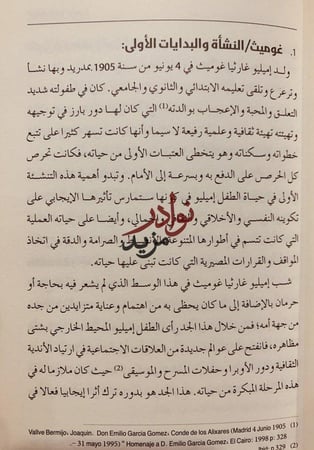 1. غوميث/النشأة والبدايات الأولى:
ولد إميليو غارثيا غوميث في 4 يونيو من سنة 1905 بمدريد وبها نشأ
وترعرع وتلقى تعليمه الابتدائي والثانوي والجامعي. كان في طفولته شديد
التعلق والمحبة والإعجاب بوالدته(1) التي كان لها دور بارز في توجيهه
وتهيئته تهيئة ثقافية وعلمية رفيعة لا سيما وأنها كانت تسهر كثيرا على تتبع
خطواته وسكناته وهو يتخطى العتبات الأولى من حياته، فكانت تحرص
كل الحرص على الدفع به وبسرعة إلى الأمام. وتبدو أهمية هذه التنشئة
الأولى في حياة الطفل إميليو في كونها ستمارس تأثيرها الإيجابي على
تكوينه النفسي والأخلاقي والجمالي، وأيضا على حياته العملية
التي كانت تتسم في أطوارها المتنوعة الصرامة والدقة في اتخاذ
المواقف والقرارات المصيرية التي كانت تبنى عليها حياته.
شب إميليو غارثيا غوميث في هذا الوسط الذي لم يشعر فيه بحاجة أو
حرمان بالإضافة إلى ما كان يحظى به من اهتمام وعناية متزايدين من جده
من جهة أمه؛ فمن خلال هذا الجد رأى الطفل إميليو المحيط الخارجي بشتى
مظاهره، فانفتح على عوالم جديدة من العلاقات الاجتماعية في ارتياد الأندية
الثقافية ودور الأوبرا وحفلات المسرح والموسيقى(2) حيث كان ملازما له في
هذه المرحلة المبكرة من حياته. هذا الجد هو بدوره ترك أثرا إيجابيا فعالا في
نوادر
مزيد
(1) Vallve Bermijo, Joaquin. Don Emilio Garcia Gomez, Conde de los Alixares (Madrid 4 Junio 1905
– 31 mayo 1995)" Homenaje a D. Emilio Garcia Gomez, El Cairo: 1998 p: 328
p: 329 (2)